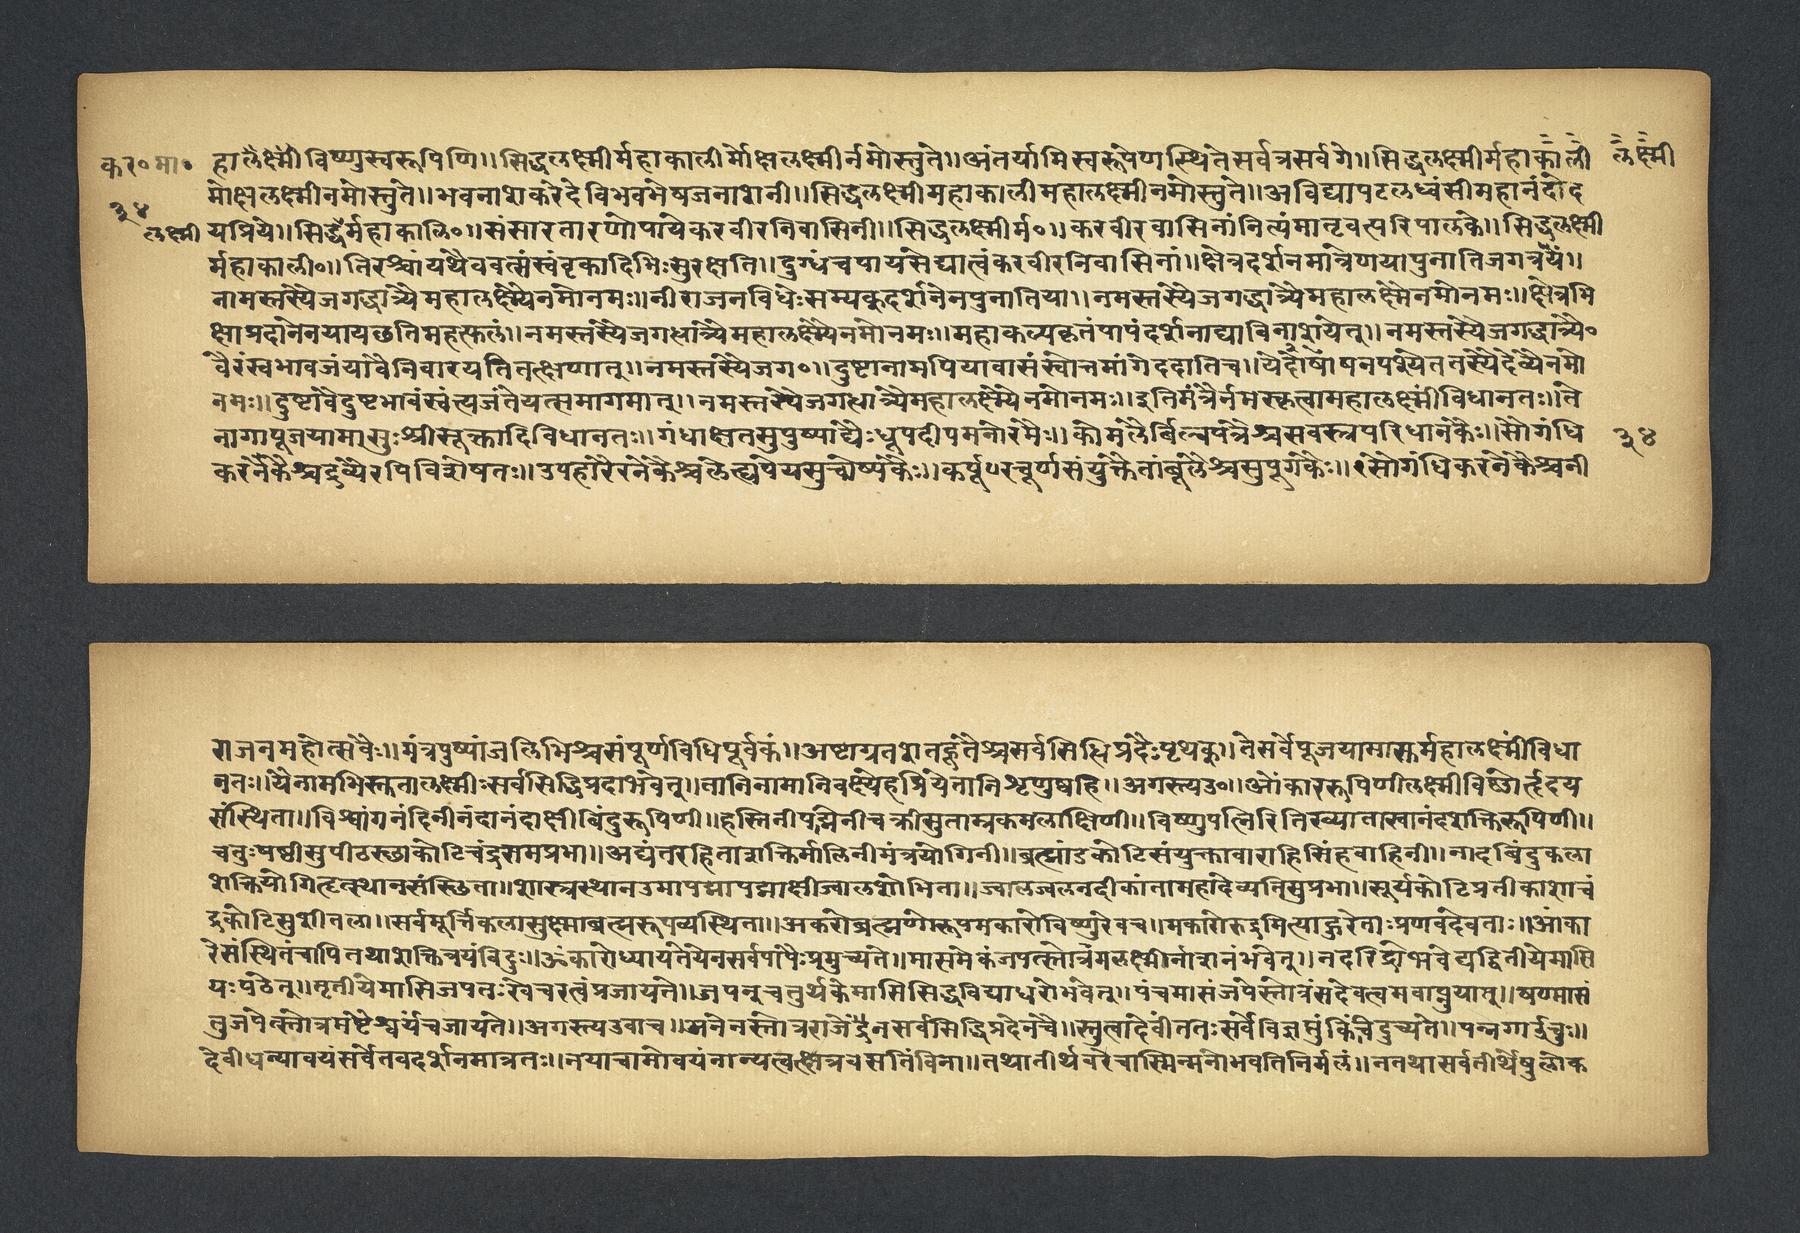 कर०मा० हालक्ष्मी विष्णुस्वरूपिणि॥ सिद्धलक्ष्मीर्महाकालीर्मोक्षलक्ष्मीर्नमोस्तुते॥ अंतर्यामिस्वरूपेणस्थितेसर्वत्रसर्वगे॥ सिद्धलक्ष्मीर्महाकाली लक्ष्मी
मोक्षलक्ष्मीनमोस्तुते॥ भवनाशकरेदेविभवभेषजनाशनी॥ सिद्धलक्ष्मीमहाकालीमहालक्ष्मीनमोस्तुते॥ अविद्यापटलध्वंसीमहानंदोद
३४
लक्ष्मी यप्रिये॥ सिद्धैर्महाकालि०॥ संसारतारणोपायेकरवीरनिवासिनी॥ सिद्धलक्ष्मीर्म०॥ करवीरवासिनांनित्यंमातृवत्परिपालके॥ सिद्धलक्ष्मी
र्महाकाली०॥ तिरश्चांयथैववत्संस्वंवृकादिभिःसुरक्षति॥ दुग्धंचपायसैद्यात्वंकरवीरनिवासिनां॥ क्षेत्रदर्शनमात्रेणयापुनातिजगत्रयं॥
नामस्तस्यैजगद्धात्र्यैमहालक्ष्म्यैनमोनमः॥ नीराजनविधेःसम्यक्दर्शनेनपुनातिया॥ नमस्तस्यैजगद्धात्र्यैमहालक्ष्मैनमोनमः॥ क्षेत्रभि
क्षाप्रदानेनयायछतिमहत्फलं॥ नमस्तस्यैजगद्धात्र्यैमहालक्ष्म्यैनमोनमः॥ महाकल्पकृतंपापंदर्शनाद्याविनाशयेत्॥ नमस्तस्यैजगद्धात्र्यै०
वैरंस्वभावजंयावैनिवारयतितत्क्षणात्॥ नमस्तस्यैजग०॥ दुष्टानामपियावासंस्वोत्तमांगेददातिच॥ येदोषापनपश्येततस्यैदेव्यैनमो
नमः॥ दुष्टावैदुष्टभावंस्वंत्यजंतेयत्समागमात्॥ नमस्तस्यैजगद्धात्र्यैमहालक्ष्म्यैनमोनमः॥ इतिमंत्रैर्नमस्कृत्वामहालक्ष्मींविधानतः॥ ते
नागापूजयामासुःश्रीसूक्तादिविधानतः॥ गंधाक्षतसुपुष्पाद्यैःधूपदीपमनोरमैः॥ कोमलैर्बिल्वपत्रैश्चसवस्त्रपरिधानकैः॥ सौगंधि ३४
करनेकैश्चद्रव्यैरपिविशेषतः॥ उपहारैरनेकैश्चलेह्यपेयसुचोष्यकैः॥ कर्पूरचूर्णसंयुक्तैतांबूलैश्चसुपूगकैः॥ रसोगंधिकरनेकैश्चनी
राजनमहोत्सवैः॥ मंत्रपुष्पांजलिभिश्चसंपूर्णविधिपूर्वकं॥ अष्टाग्रतशतहुतैश्चसर्वसिद्धिप्रदैःपृथक्॥ तेसर्वेपूजयामास्तर्महालक्ष्मींविधा
नतः॥ यैनामभिस्तुतालक्ष्मीःसर्वसिद्धिप्रदाभवेत्॥ तानिनामानिवक्ष्येहंप्रियेतानिशृणुष्वहि॥ अगस्त्यउ०॥ ओंकाररूपिणीलक्ष्मीविष्णोर्हृदय
संस्थिता॥ विश्वांगनंदिनीनंदानंदाक्षीबिंदुरूपिणी॥ हस्तिनीपद्मिनीचक्रीसुताम्रकमलाक्षिणी॥ विष्णुपत्निरितिख्यातास्वानंदशक्तिरूपिणी॥
चतुःषष्ठीसुपीठस्छाकोटिचंद्रसमप्रभा॥ अद्यंतरहिताशक्तिर्मालिनीमंत्रयोगिनी॥ ब्रह्मांडकोटिसंयुक्तावाराहिसिंहवाहिनी॥ नादबिंदुकला
शक्तियोगित्हृत्स्थानसंस्थिता॥ शास्त्रस्थानउमापद्मापद्माक्षीज्वालशोभिता॥ ज्वालज्वलनदीकांतामहादेव्यनिसुप्रभा॥ सूर्यकोटिप्रतीकाशाचं
द्रकोटिसुशीतला॥ सर्वमूर्त्तिकलासुक्ष्माब्रह्मरूपव्यस्थिता॥ अकरोब्रह्मणोरूपमकारोविष्णुरेवच॥ मकारोरुद्रमित्याहुरेताःप्रणवदेवताः॥ ओंका
रेसंस्थितंचापितथाशक्तित्रयंविदुः॥ ॐकारोध्यायतेयेनसर्वपापैःप्रमुच्यते॥ मासमेकंजपत्स्तोत्रंमलक्ष्मीर्नाशनंभवेत्॥ नदरिद्रोभवेद्यद्वितीयेमासि
यःपठेत्॥ तृतीयेमासिजपतःखेचरत्वंप्रजायते॥ जपनुचतुर्थकेमासिसिद्धविद्याधरोभवेत्॥ पंचमासंजपेस्तोत्रंसदेवत्वमवाप्नुयात्॥ षण्मासं
तुजपेत्स्तोत्रमष्टैश्वर्यंचजायते॥ अगस्त्यउवाच॥ अनेनस्तोत्रराजेंद्रेनसर्वसिद्धिप्रदेनचै॥ स्तुत्वादेवींततःसर्वेविज्ञप्तुंकिंचिदुच्यते॥ पन्नगार्उचुः॥
देवीधन्यावयंसर्वेतवदर्शनमात्रतः॥ नयाचामोवयंनान्यत्वत्क्षेत्रवसतिंविना॥ तथातीर्थवरेचास्मिन्मनोभवतिनिर्मलं॥ नतथासर्वतीर्थेषुलोक